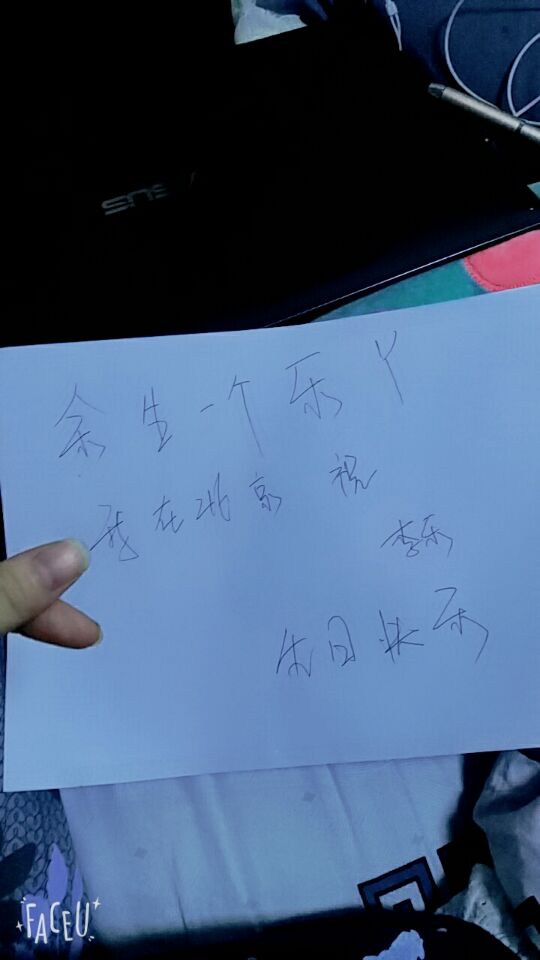 ASUS
余生一个乐丫
我在北京 祝
李乐
生日快乐
FACEU